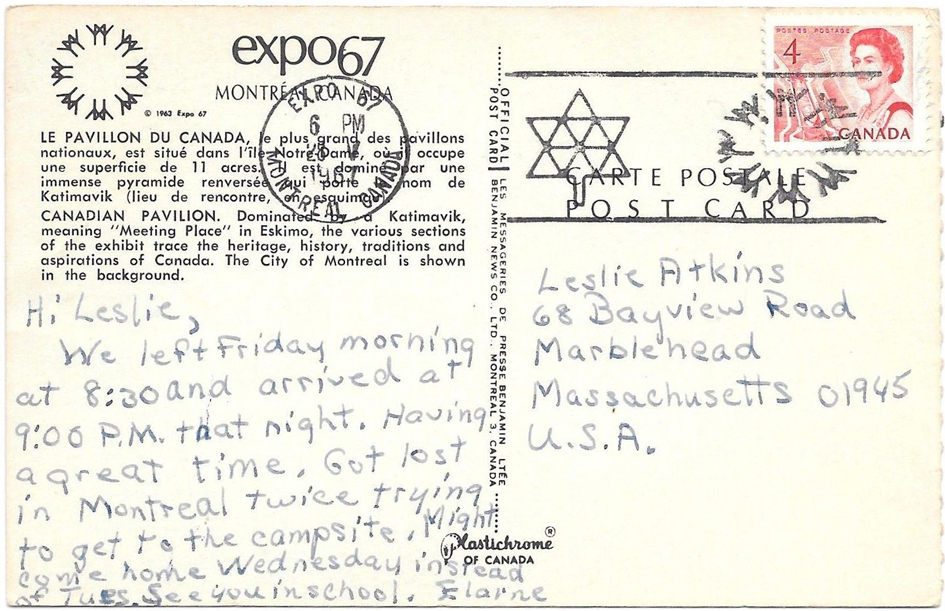 expo67
MONTRÉAL, CANADA
© 1963 Expo 67
LE PAVILLON DU CANADA, le plus grand des pavillons
nationaux, est situé dans l'île Notre-Dame, où il occupe
une superficie de 11 acres. Il est dominé par une
immense pyramide renversée qui porte le nom de
Katimavik (lieu de rencontre, en esquimau).
CANADIAN PAVILION. Dominated by a Katimavik,
meaning "Meeting Place" in Eskimo, the various sections
of the exhibit trace the heritage, history, traditions and
aspirations of Canada. The City of Montreal is shown
in the background.
EXPO 67
6 PM
1967
MONTREAL CANADA
Hi Leslie,
We left Friday morning
at 8:30 and arrived at
9:00 P.M. that night. Having
a great time. Got lost
in Montreal twice trying
to get to the campsite. Might
come home Wednesday instead
of Tues. See you in school. Elaine
OFFICIAL POST CARD
LES MESSAGERIES DE PRESSE BENJAMIN LTÉE
BENJAMIN NEWS CO., LTD. MONTREAL 3, CANADA
Plastichrome®
OF CANADA
POSTES POSTAGE
4
CANADA
CARTE POSTALE
POST CARD
Leslie Atkins
68 Bayview Road
Marblehead
Massachusetts 01945
U.S.A.